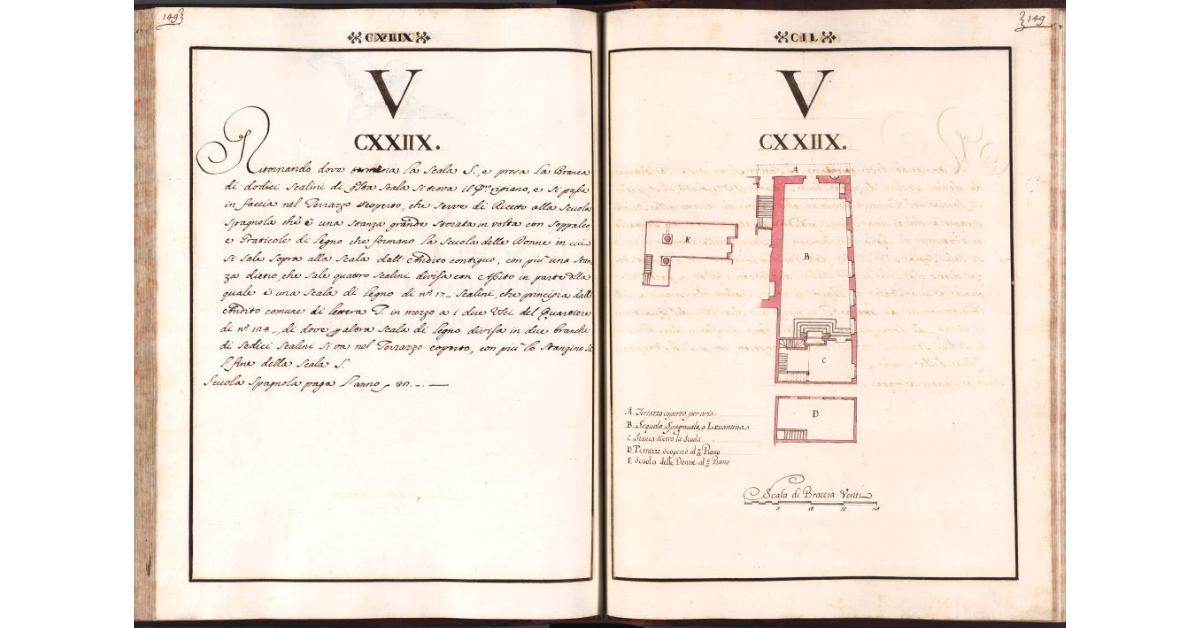 149
CXLIX
V
CXXIIX.
Ritornando dove termina la Scala S., e presa la Branca
di dodici Scalini di dta Scala si trova il Po. cipiano, e si passa
in faccia nel Terrazzo scoperto, che serve di Ricetto alla Scuola
Spagnola che è una stanza grande stoiata in volta con Soppalco,
e Graticole di legno che formano la Scuola delle Donne in cui
si Sale Sopra alla Scala dall' Andito contiguo, con più una stan
za dietro, che sale quattro Scalini divisa con Assito in parte della
quale è una Scala di legno di n° 17_ Scalini, che principia dall'
Andito comune di lettera T. in mezzo a i due Usci del Quartiere
di n° 128_, di dove altra Scala di legno divisa in due branche
di Sedici Scalini si va nel Terrazzo coperto, con più lo Stanzino
fine della Scala S.
Scuola Spagnola paga l'anno 80._._
149
CIL
V
CXXIIX.
A
E
B
C
D
A Terrazzo coperto, per aria
B. Sequola Spagnuola, o Levantina
C Stanza dietro la Scuola
D Terrazzo scoperto al 2° Piano
E Scuola delle Donne al 2° Piano
Scala di Braccia Venti